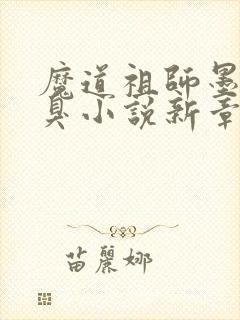 魔道祖師墨
臭小說新章
苗麗娜